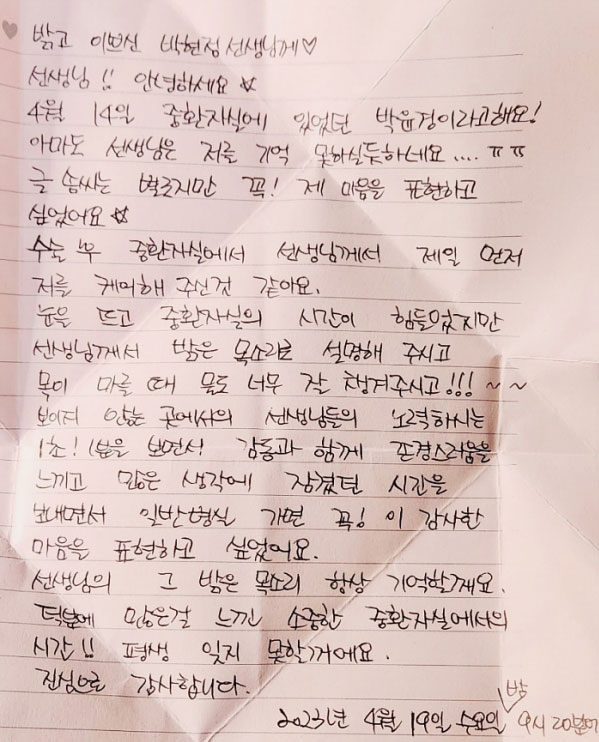 밝고 이쁘신 박현정 선생님께♡
선생님!! 안녕하세요 ☆
4월 14일 중환자실에 있었던 박윤정이라고해요!
아마도 선생님은 저를 기억 못하실듯하네요.... ㅠㅠ
글 솜씨는 별로지만 꼭! 제 마음을 표현하고
싶었어요 ☆
수술 후 중환자실에서 선생님께서 제일 먼저
저를 케어해 주신것 같아요.
눈을 뜨고 중환자실의 시간이 힘들었지만
선생님께서 밝은 목소리로 설명해 주시고
목이 마를 때 물도 너무 잘 챙겨주시고!!! ~ ~
보이지 않는 곳에서의 선생님들의 노력하시는
1초! 1분을 보면서 감동과 함께 존경스러움을
느끼고 많은 생각에 잠겼던 시간을
보내면서 일반병실 가면 꼭! 이 감사한
마음을 표현하고 싶었어요.
선생님의 그 밝은 목소리 항상 기억할께요.
덕분에 많은걸 느낀 소중한 중환자실에서의
시간!! 평생 잊지 못할거에요.
진심으로 감사합니다.
2023년 4월 19일 수요일 밤 9시 20분에